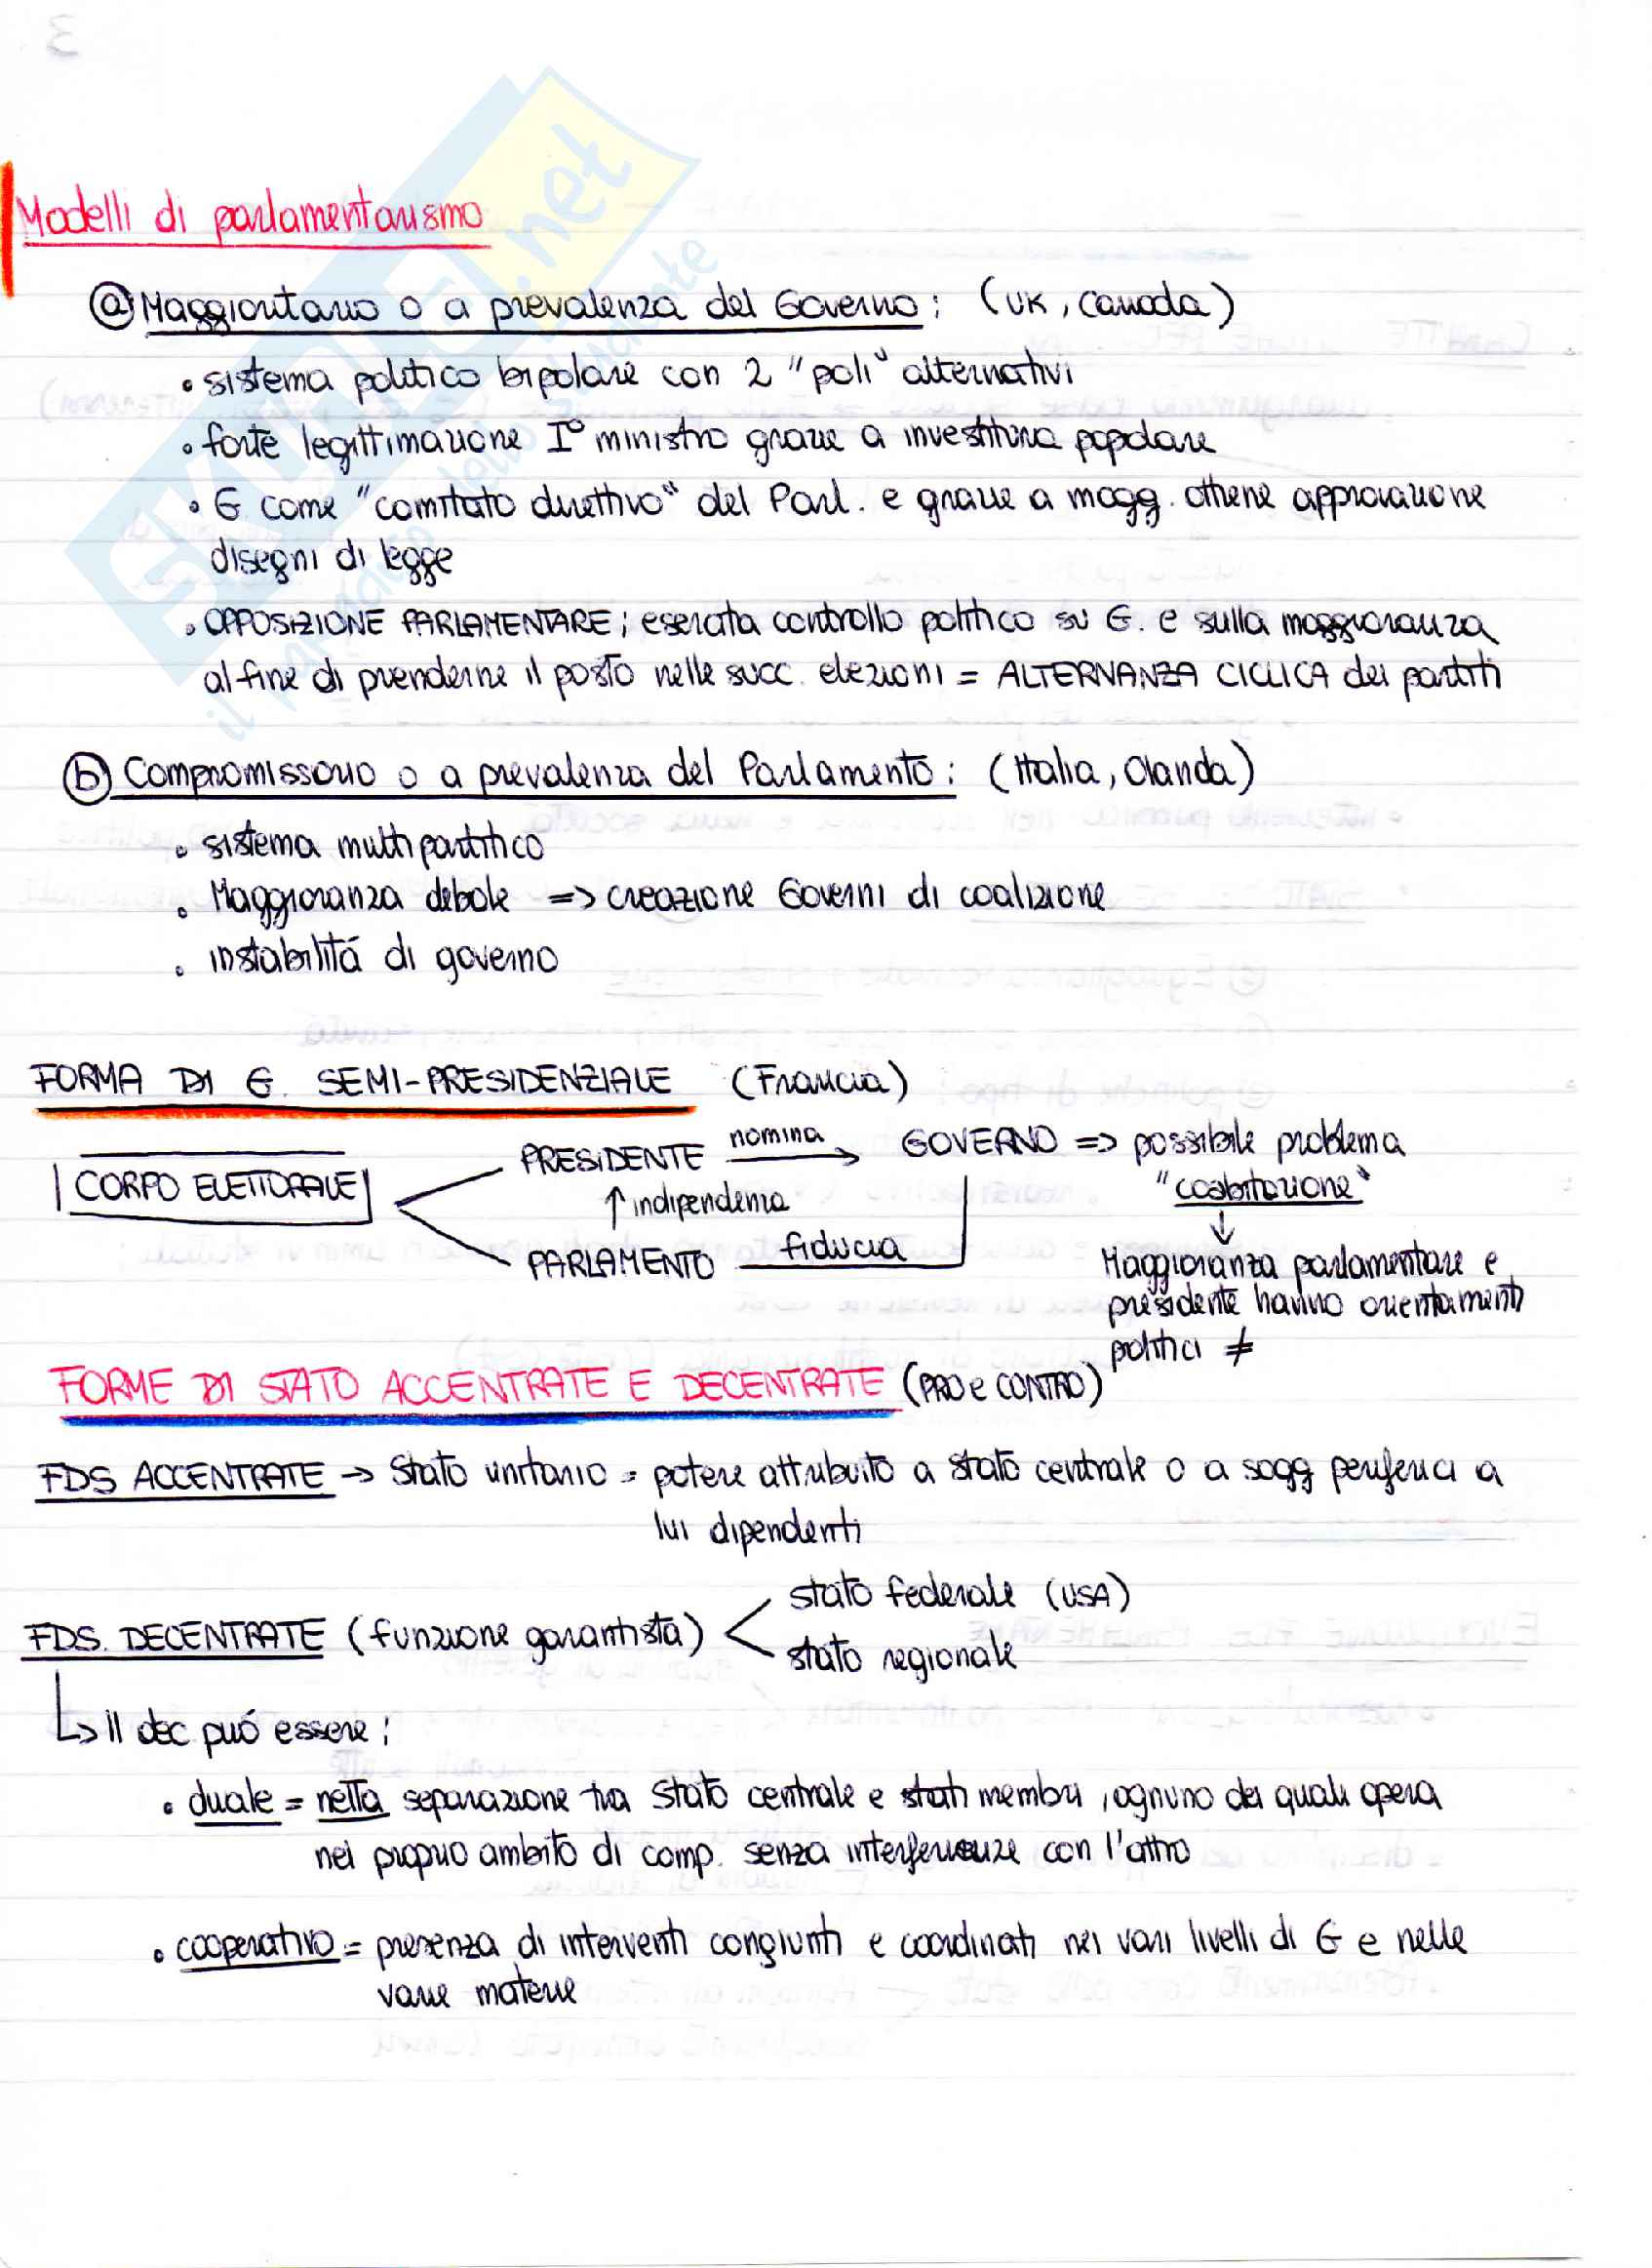 3
SKUOLA.net
il paradiso dello studente
Modelli di parlamentarismo
ⓐ Maggioritario o a prevalenza del Governo: (UK, Canada)
• sistema politico bipolare con 2 "poli" alternativi
• forte legittimazione I° ministro grazie a investitura popolare
• G come "comitato direttivo" del Parl. e grazie a magg. ottiene approvazione
disegni di legge
• OPPOSIZIONE PARLAMENTARE; esercita controllo politico su G. e sulla maggioranza
al fine di prenderne il posto nelle succ. elezioni = ALTERNANZA CICLICA dei partiti
ⓑ Compromissorio o a prevalenza del Parlamento: (Italia, Olanda)
• sistema multipartitico
• Maggioranza debole => creazione Governi di coalizione
• instabilitá di governo
FORMA DI G. SEMI-PRESIDENZIALE (Francia)
CORPO ELETTORALE
PRESIDENTE nomina → GOVERNO => possibile problema
"coabitazione"
↑ indipendenza
↓
PARLAMENTO fiducia
Maggioranza parlamentare e
presidente hanno orientamenti
politici ≠
FORME DI STATO ACCENTRATE E DECENTRATE (PRO e CONTRO)
FDS ACCENTRATE → Stato unitario = potere attribuito a stato centrale o a sogg periferici a
lui dipendenti
FDS. DECENTRATE (funzione garantista) < stato federale (USA)
stato regionale
↳ il dec puó essere:
• duale = netta separazione tra Stato centrale e stati membri, ognuno dei quali opera
nel proprio ambito di comp. senza interferenze con l'altro
• cooperativo = presenza di interventi congiunti e coordinati nei vari livelli di G e nelle
varie materie